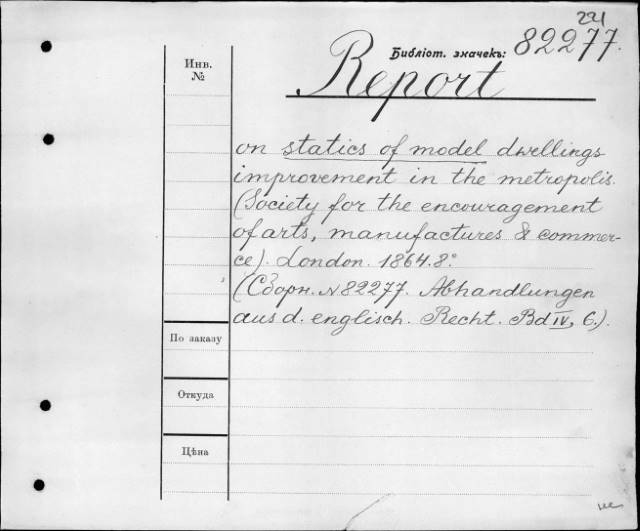 221
Библіот. значекъ: 82277.
Инв.
№
Report
on statics of model dwellings
improvement in the metropolis.
(Society for the encouragement
of arts, manufactures & commer-
ce). London. 1864. 8°.
(Сборн. № 82277. Abhandlungen
aus d. englisch. Recht. Bd IV, 6.).
По заказу
Откуда
Цѣна